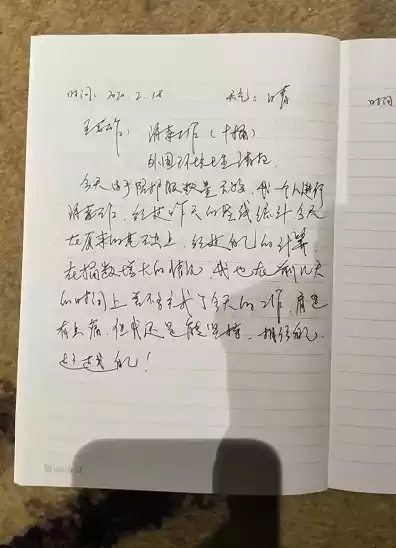 时间：2020.2.18 天气：
主要工作：消毒工作（十桶）
外围环境卫生清扫
今天由于防护服数量不够，我一个人进行
消毒工作，经过昨天的路线统计今天
在原来的基础上，经过自己的计算，
在桶数增大的情况，我也在前几天
的时间上差不多完成了今天的工作，肩边
有点痛，但我还是能坚持，相信自己，
超越自己！
时间